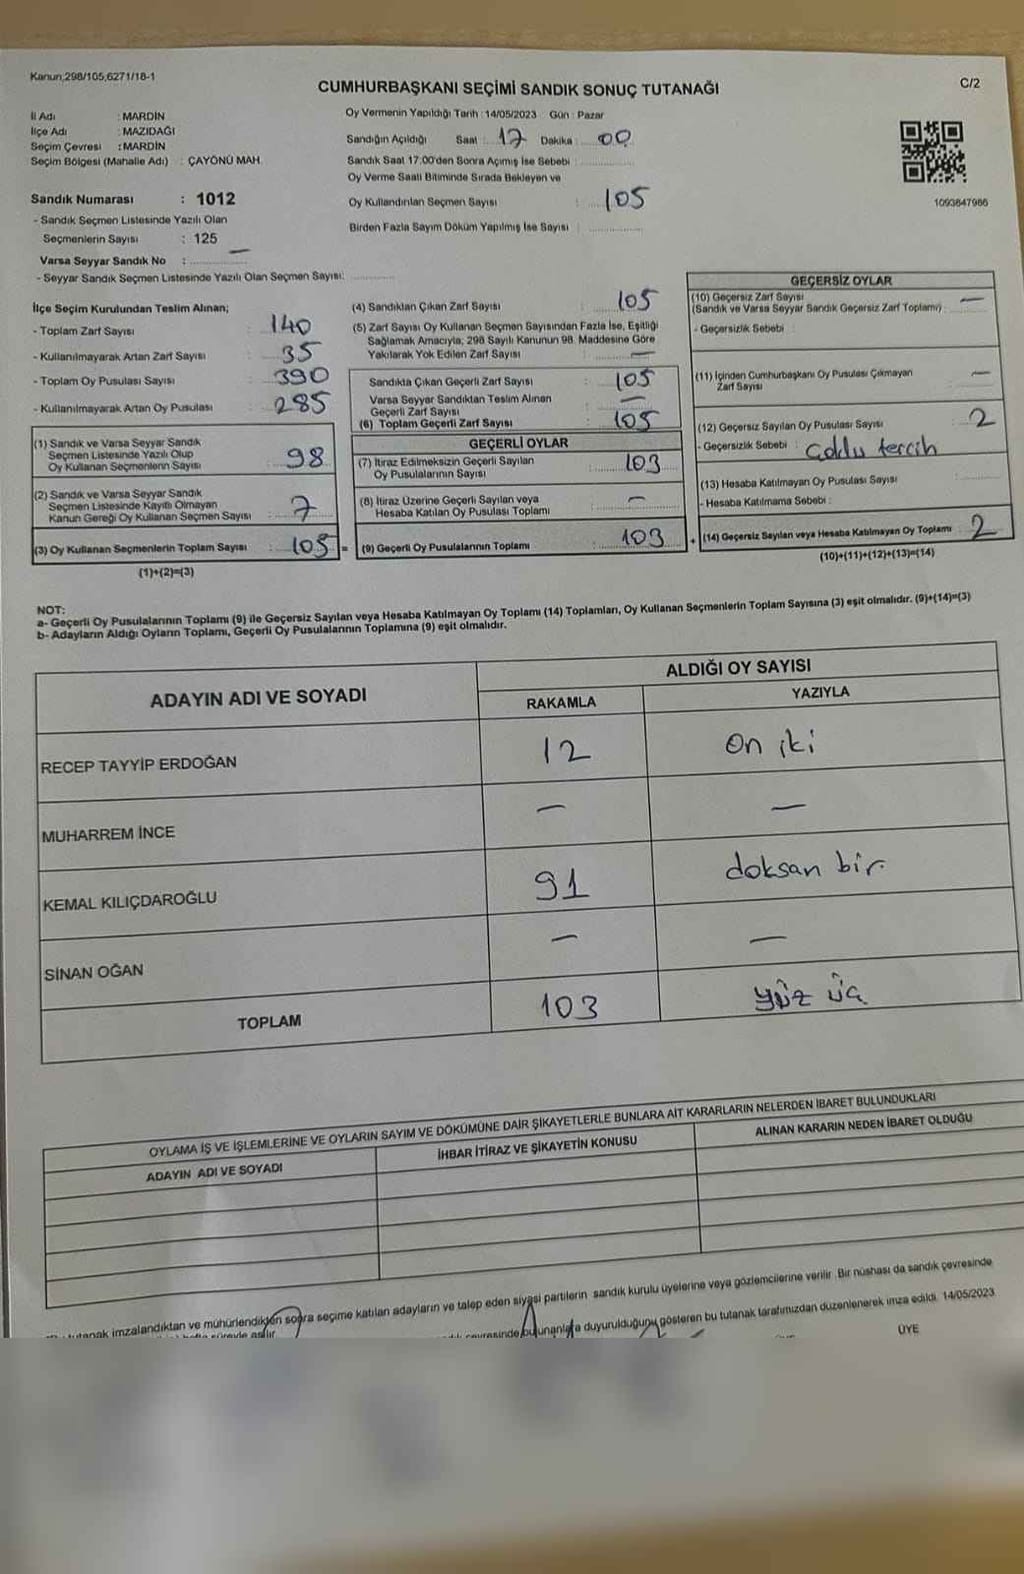 Kanun;298/105,6271/18-1
CUMHURBAŞKANI SEÇİMİ SANDIK SONUÇ TUTANAĞI
C/2
İl Adı : MARDİN
İlçe Adı : MAZIDAĞI
Seçim Çevresi : MARDİN
Seçim Bölgesi (Mahalle Adı) : ÇAYÖNÜ MAH.
Oy Vermenin Yapıldığı Tarih : 14/05/2023 Gün : Pazar
Sandığın Açıldığı Saat : 17 Dakika : 00
Sandık Saat 17:00'den Sonra Açmış İse Sebebi :
Oy Verme Saati Bitiminde Sırada Bekleyen ve
Oy Kullandırılan Seçmen Sayısı : 105
Birden Fazla Sayım Döküm Yapılmış İse Sayısı :
1093847986
Sandık Numarası : 1012
- Sandık Seçmen Listesinde Yazılı Olan
Seçmenlerin Sayısı : 125
Varsa Seyyar Sandık No : —
- Seyyar Sandık Seçmen Listesinde Yazılı Olan Seçmen Sayısı:
İlçe Seçim Kurulundan Teslim Alınan;
- Toplam Zarf Sayısı : 140
- Kullanılmayarak Artan Zarf Sayısı : 35
- Toplam Oy Pusulası Sayısı : 390
- Kullanılmayarak Artan Oy Pusulası : 285
(1) Sandık ve Varsa Seyyar Sandık
Seçmen Listesinde Yazılı Olup
Oy Kullanan Seçmenlerin Sayısı : 98
(2) Sandık ve Varsa Seyyar Sandık
Seçmen Listesinde Kayıtlı Olmayan
Kanun Gereği Oy Kullanan Seçmen Sayısı : 7
(3) Oy Kullanan Seçmenlerin Toplam Sayısı : 105 =
(1)+(2)=(3)
(4) Sandıktan Çıkan Zarf Sayısı : 105
(5) Zarf Sayısı Oy Kullanan Seçmen Sayısından Fazla İse, Eşitliği
Sağlamak Amacıyla; 298 Sayılı Kanunun 98. Maddesine Göre
Yakılarak Yok Edilen Zarf Sayısı : —
Sandıkta Çıkan Geçerli Zarf Sayısı : 105
Varsa Seyyar Sandıktan Teslim Alınan
Geçerli Zarf Sayısı : —
(6) Toplam Geçerli Zarf Sayısı : 105
GEÇERLİ OYLAR
(7) İtiraz Edilmeksizin Geçerli Sayılan
Oy Pusulalarının Sayısı : 103
(8) İtiraz Üzerine Geçerli Sayılan veya
Hesaba Katılan Oy Pusulası Toplamı : —
(9) Geçerli Oy Pusulalarının Toplamı : 103 +
GEÇERSİZ OYLAR
(10) Geçersiz Zarf Sayısı
(Sandık ve Varsa Seyyar Sandık Geçersiz Zarf Toplamı) : —
- Geçersizlik Sebebi :
(11) İçinden Cumhurbaşkanı Oy Pusulası Çıkmayan
Zarf Sayısı : —
(12) Geçersiz Sayılan Oy Pusulası Sayısı : 2
- Geçersizlik Sebebi : Çoklu tercih
(13) Hesaba Katılmayan Oy Pusulası Sayısı :
- Hesaba Katılmama Sebebi :
(14) Geçersiz Sayılan veya Hesaba Katılmayan Oy Toplamı : 2
(10)+(11)+(12)+(13)=(14)
NOT:
a- Geçerli Oy Pusulalarının Toplamı (9) ile Geçersiz Sayılan veya Hesaba Katılmayan Oy Toplamı (14) Toplamları, Oy Kullanan Seçmenlerin Toplam Sayısına (3) eşit olmalıdır. (9)+(14)=(3)
b- Adayların Aldığı Oyların Toplamı, Geçerli Oy Pusulalarının Toplamına (9) eşit olmalıdır.
ADAYIN ADI VE SOYADI
ALDIĞI OY SAYISI
RAKAMLA YAZIYLA
RECEP TAYYİP ERDOĞAN 12 on iki
MUHARREM İNCE — —
KEMAL KILIÇDAROĞLU 91 doksan bir
SİNAN OĞAN — —
TOPLAM 103 yüz üç
OYLAMA İŞ VE İŞLEMLERİNE VE OYLARIN SAYIM VE DÖKÜMÜNE DAİR ŞİKAYETLERLE BUNLARA AİT KARARLARIN NELERDEN İBARET BULUNDUKLARI
ADAYIN ADI VE SOYADI İHBAR İTİRAZ VE ŞİKAYETİN KONUSU ALINAN KARARIN NEDEN İBARET OLDUĞU
tutanak imzalandıktan ve mühürlendikten sonra seçime katılan adayların ve talep eden siyasi partilerin sandık kurulu üyelerine veya gözlemcilerine verilir. Bir nüshası da sandık çevresinde
bulunanlara duyurulduğunu gösteren bu tutanak tarafımızdan düzenlenerek imza edildi. 14/05/2023
ÜYE